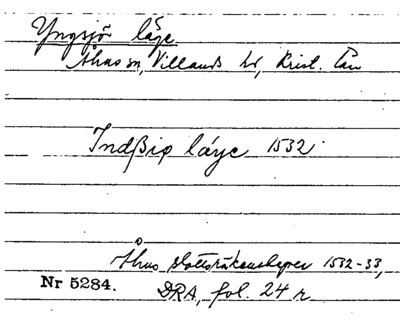 Yngsjö läge
Åhus sn, Villands hd, Krist. län
Indßiø láýe 1532
Åhus slottsräkenskaper 1532-33,
Nr 5284.
DRA, fol. 24 r